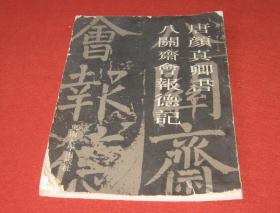 唐顏真卿書
八關齋會報德記
齋
會報